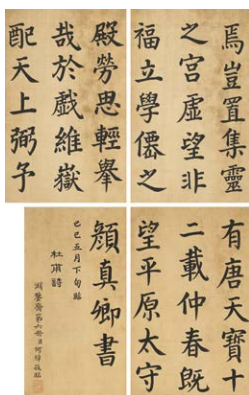 焉豈置集靈
之宮虛望非
福立學僊之
殿勞思輕舉
哉於戲維嶽
配天上弼予
有唐天寶十
二載仲春既
望平原太守
顏真卿書
己巳五月下旬臨